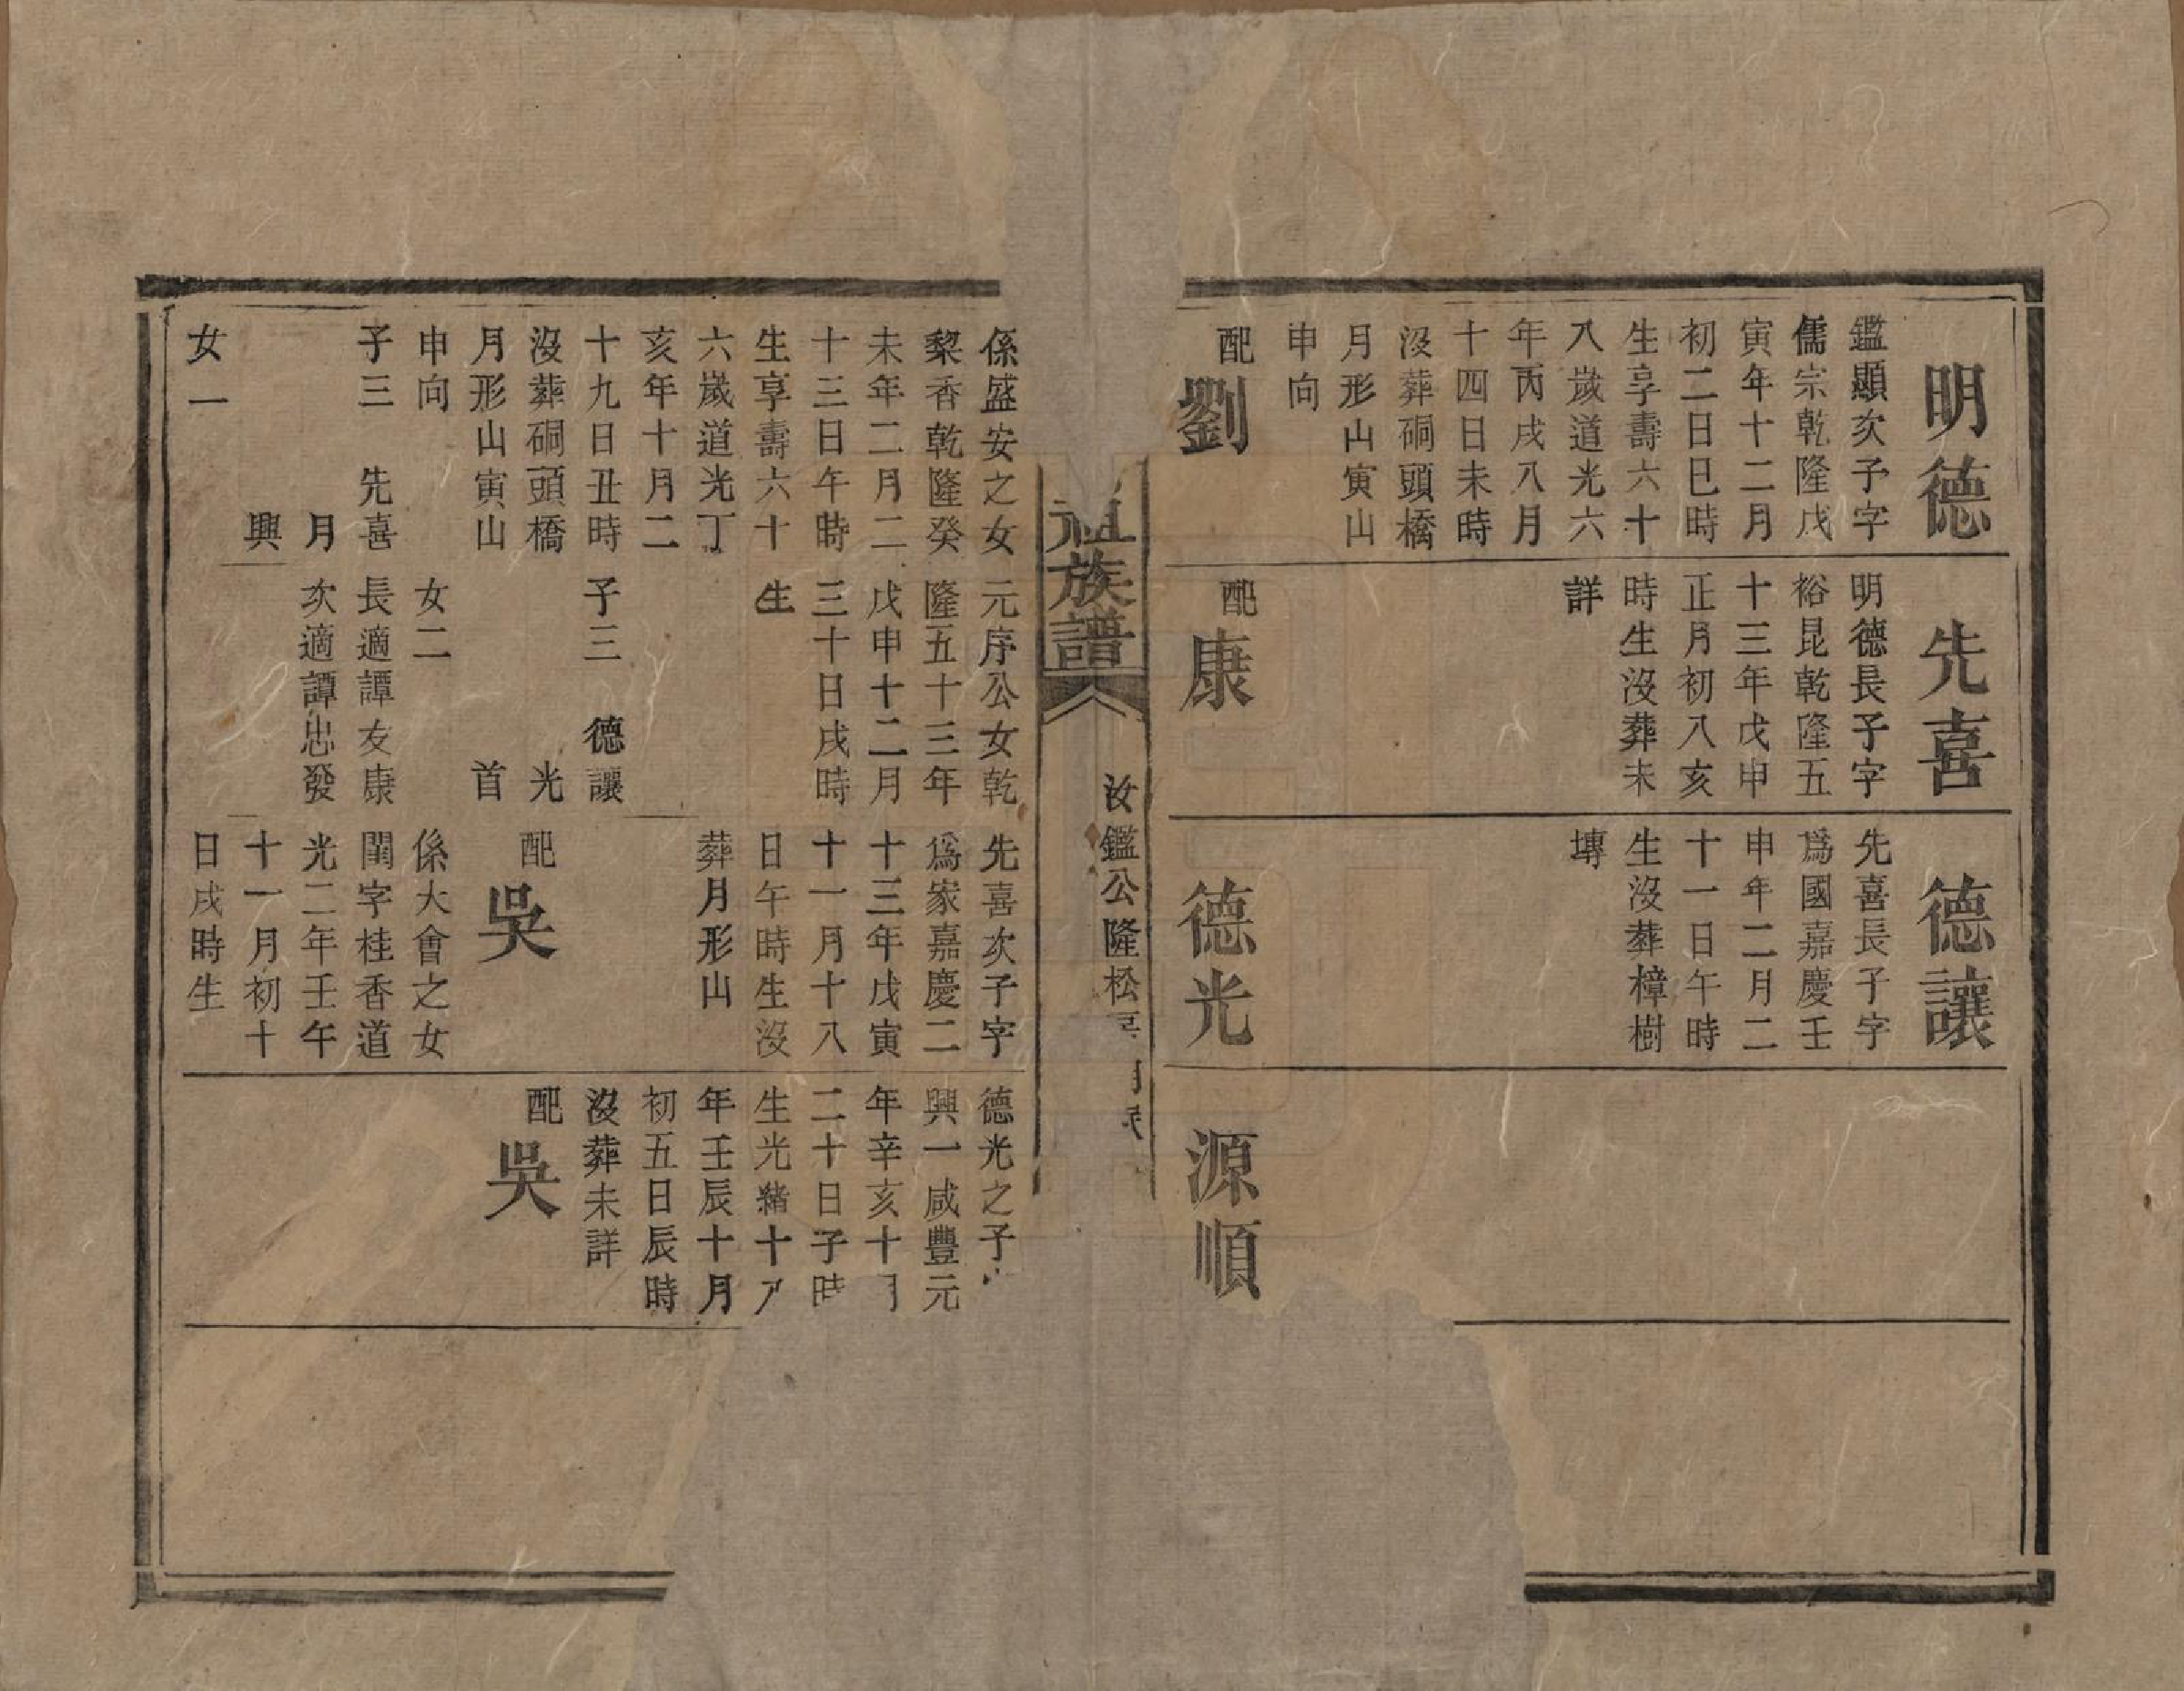 明德
鑑顯次子字
儒宗乾隆戊
寅年十二月
初二日巳時
生享壽六十
八歲道光六
年丙戌八月
十四日未時
沒葬硐頭橋
月形山寅山
申向
配劉
先喜
明德長子字
裕昆乾隆五
十三年戊申
正月初八亥
時生沒葬未
詳
配康
德讓
先喜長子字
爲國嘉慶壬
申年二月二
十一日午時
生沒葬樟樹
塼
德光
源順
族譜
汝鑑公隆松
係盛安之女
黎香乾隆癸
未年二月二
十三日午時
生享壽六十
六歲道光丁
亥年十月二
十九日丑時
沒葬硐頭橋
月形山寅山
申向
子三 先喜
月
興
女一
元序公女乾
隆五十三年
戊申十二月
三十日戌時
生
子三 德讓
光
首
女二
長適譚友康
次適譚忠發
先喜次子字
爲家嘉慶二
十三年戊寅
十一月十八
日午時生沒
葬月形山
配吳
係大會之女
閨字桂香道
光二年壬午
十一月初十
日戌時生
德光之子
興一咸豐元
年辛亥十月
二十日子時
生光緒十八
年壬辰十月
初五日辰時
沒葬未詳
配吳